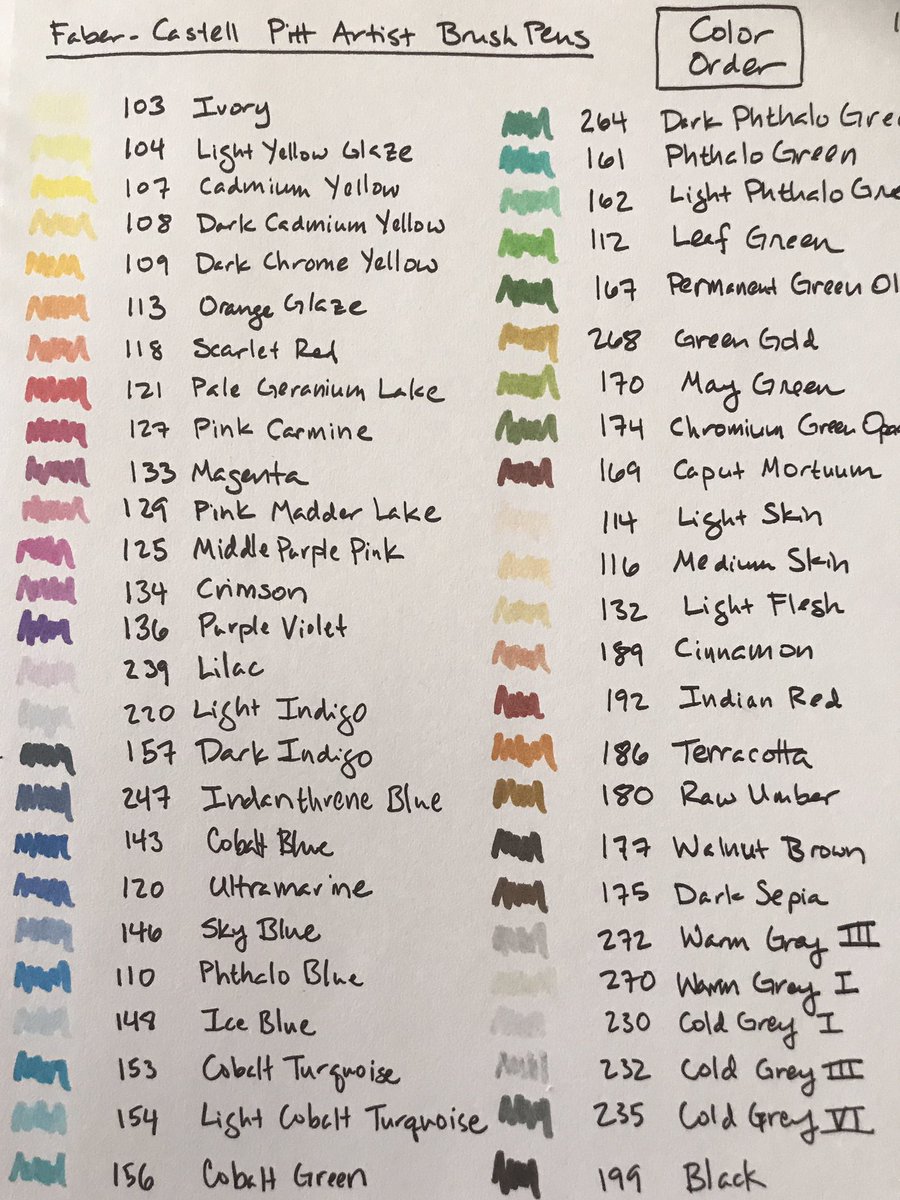 Faber-Castell Pitt Artist Brush Pens
Color
Order
103 Ivory
104 Light Yellow Glaze
107 Cadmium Yellow
108 Dark Cadmium Yellow
109 Dark Chrome Yellow
113 Orange Glaze
118 Scarlet Red
121 Pale Geranium Lake
127 Pink Carmine
133 Magenta
129 Pink Madder Lake
125 Middle Purple Pink
134 Crimson
136 Purple Violet
239 Lilac
220 Light Indigo
157 Dark Indigo
247 Indanthrene Blue
143 Cobalt Blue
120 Ultramarine
146 Sky Blue
110 Phthalo Blue
148 Ice Blue
153 Cobalt Turquoise
154 Light Cobalt Turquoise
156 Cobalt Green
264 Dark Phthalo Gree
161 Phthalo Green
162 Light Phthalo Gre
112 Leaf Green
167 Permanent Green Ol
268 Green Gold
170 May Green
174 Chromium Green Opa
169 Caput Mortuum
114 Light Skin
116 Medium Skin
132 Light Flesh
189 Cinnamon
192 Indian Red
186 Terracotta
180 Raw Umber
177 Walnut Brown
175 Dark Sepia
272 Warm Gray III
270 Warm Grey I
230 Cold Grey I
232 Cold Grey III
235 Cold Grey VI
199 Black